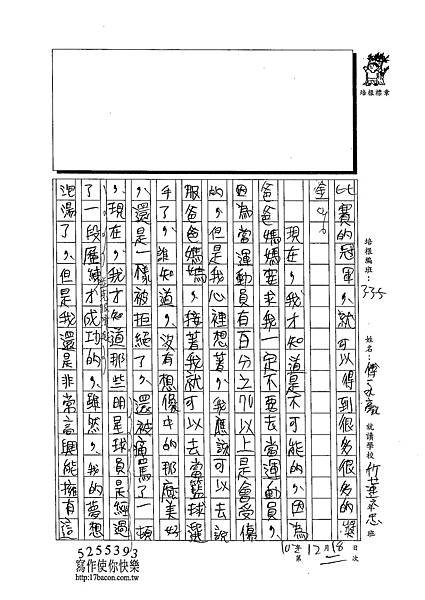 培根標章
培根編班：335
姓名：傅
就讀學校 竹蓮 忠 班
比賽的冠軍，就可以得到很多很多的獎
金。
現在，我才知道是不可能的，因為
爸爸媽媽要求我一定不要去當運動員，
因為當運動員有百分之70以上是會受傷
的，但是我心裡想著，我應該可以去說
服爸爸媽媽，接著我就可以去當籃球選
手了，誰知道，沒有想像中的那麼美好
，還是一樣被拒絕了，還被痛罵了一頓
，現在，我才知道那些明星球員是經過
了一段磨練才成功的，雖然，我的夢想
泡湯了，但是我還是非常高興能擁有這
5255393
寫作使你快樂
http://17bacon.com.tw
第 次
12月18日